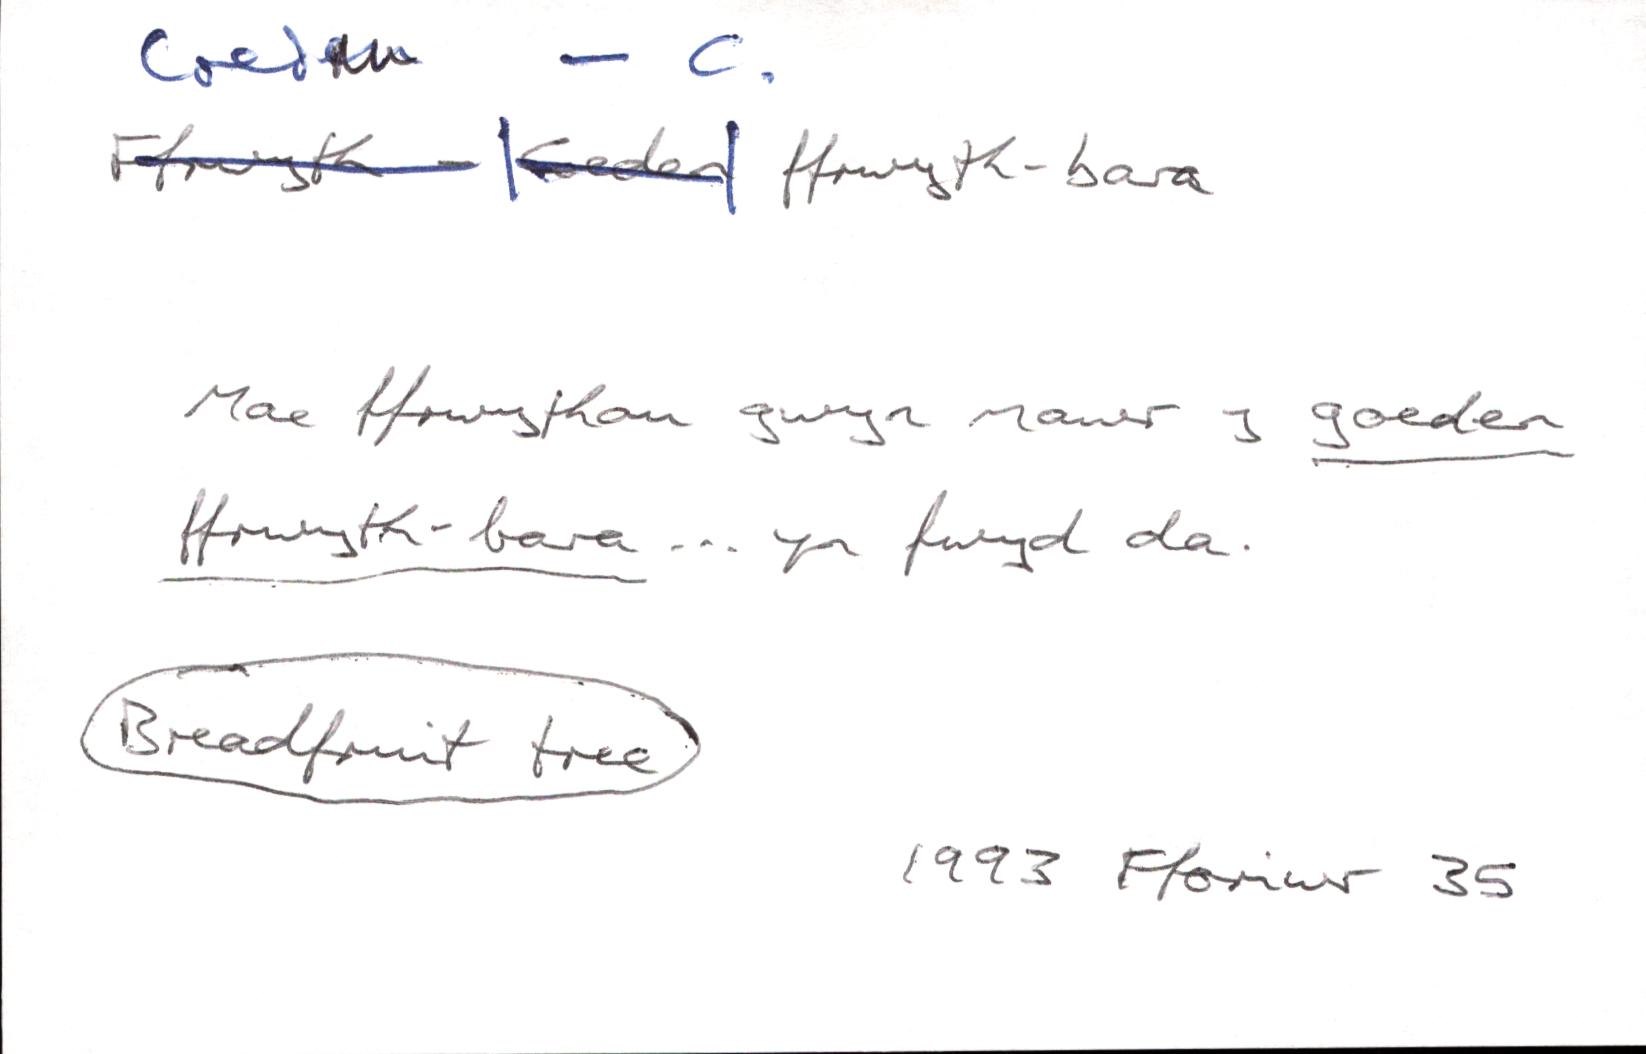 Coeden — C.
Ffrwyth - Coeden ffrwyth-bara
Mae ffrwythau gwyn mawr y goeden
ffrwyth-bara ... yn fwyd da.
Breadfruit tree
1993 Fforiwr 35